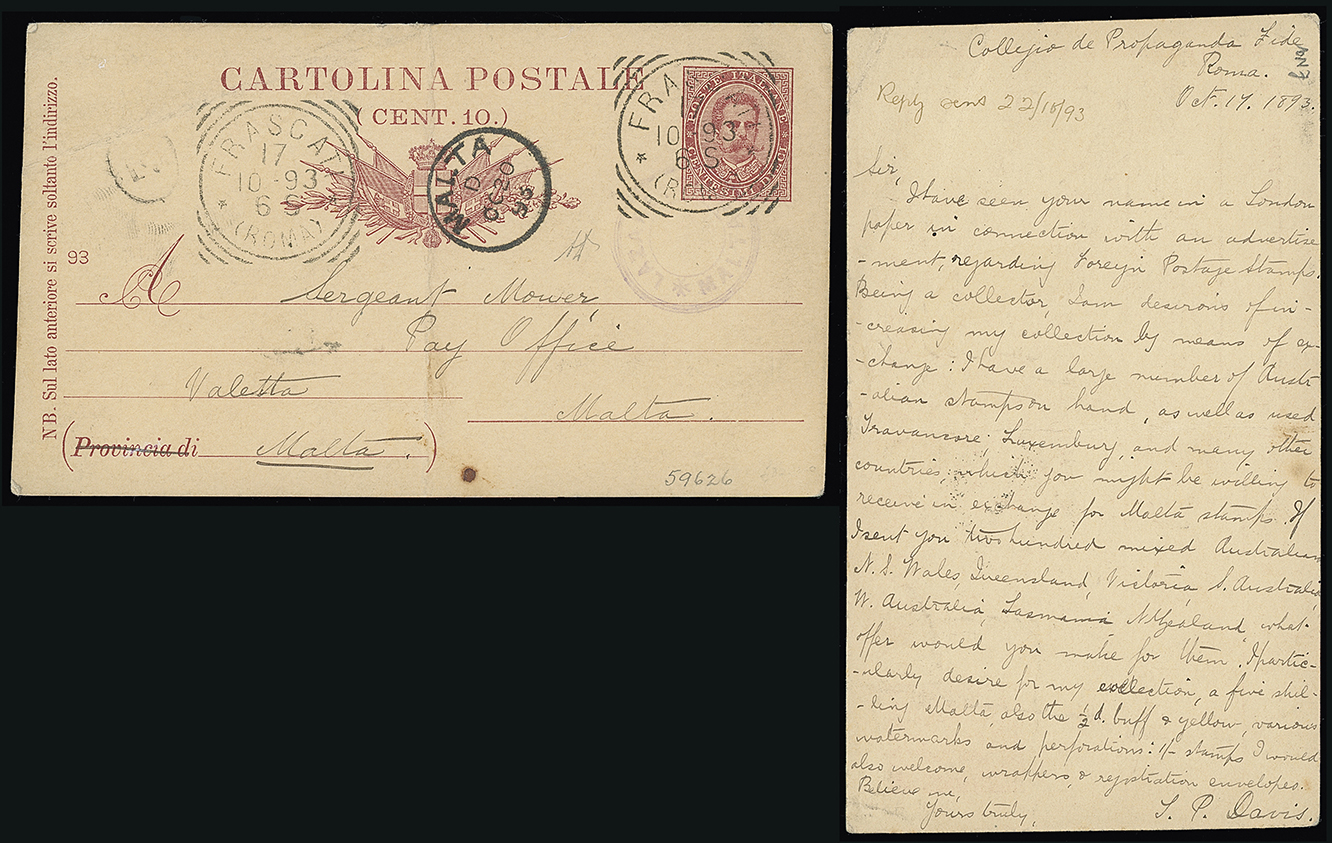 CARTOLINA POSTALE
(CENT. 10.)
POSTE ITALIANE
CENTESIMI DIECI
FRASCATI
17
10-93
6 S
* (ROMA)
FRA
10-93
6 S
*
MALTA
D
OC 20
93
MAL
N.B. Sul lato anteriore si scrive soltanto l'indirizzo.
93
A
Sergeant Mower
Pay Office
Valetta
Malta.
(Provincia di Malta.)
59626
Collegio de Propaganda Fide
Roma.
Oct. 17. 1893.
Reply sent 22/10/93
Sir,
I have seen your name in a London
paper in connection with an advertise
-ment, regarding Foreign Postage Stamps.
Being a collector, I am desirous of in-
-creasing my collection by means of ex-
-change: I have a large number of Austr-
-alian stamps on hand, as well as used
Travancore, Luxemburg, and many other
countries, which you might be willing to
receive in exchange for Malta stamps. If
I sent you two hundred mixed Australian
N. S. Wales, Queensland, Victoria, S. Australia,
W. Australia, Tasmania, N Zealand, what
offer would you make for them. I partic-
-ularly desire for my collection, a five shil-
-ling Malta, also the ½d. buff & yellow, various
watermarks and perforations: 1/- stamps I would
also welcome, wrappers, & registration envelopes.
Believe me,
Yours truly,
S. P. Davis.